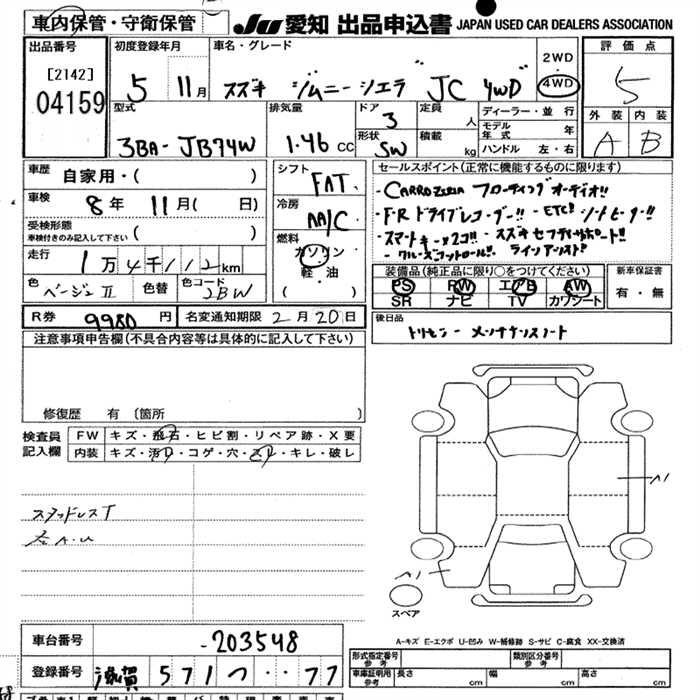 車内保管・守衛保管
JU 愛知 出品申込書 JAPAN USED CAR DEALERS ASSOCIATION
出品番号
[2142]
04159
初度登録年月
5 11月
車名・グレード
スズキ ジムニーシエラ JC 4WD
2WD
・
4WD
評価点
5
外装 内装
A B
型式
3BA-JB74W
排気量
1.46 CC
ドア
3
形状
SW
定員
人
積載
kg
ディーラー・並行
モデル年式 年
ハンドル 左・右
車歴 自家用・( )
車検 8年 11月( 日)
受検形態
車検付きのみ記入して下さい ( )
走行 1万4千112km
色 ベージュII 色替 色コード 2BW
シフト
FAT
冷房
AA/C
燃料
ガソリン
・
軽・油
( )
セールスポイント(正常に機能するものに限ります)
・CARROZZERIA フローティングオーディオ!!
・F・R ドライブレコーダー!! ・ETC!! シートヒーター!!
・スマートキー×2コ!! ・スズキセフティサポート!!
・クルーズコントロール!! ラインアシスト!!
装備品(純正品に限り○をつけてください)
PS PW エアB AW
SR ナビ TV カワシート
新車保証書
有・無
R券 9980円 名変通知期限 2月20日
後日品
トリセツ メンテナンスノート
注意事項申告欄(不具合内容等は具体的に記入して下さい)
修復歴 有 〔箇所 〕
検査員記入欄
FW キズ・飛石・ヒビ割・リペア跡・X要
内装 キズ・汚レ・コゲ・穴・スレ・キレ・破レ
スタッドレスT
A1
A1
スペア
A-キズ E-エクボ U-凹み W-補修跡 S-サビ C-腐食 XX-交換済
車台番号 -203548
登録番号 滋賀 571 つ ・・77
形式指定番号
参考
類別区分番号
参考
車庫証明用
参考
長さ cm 幅 cm 高さ cm